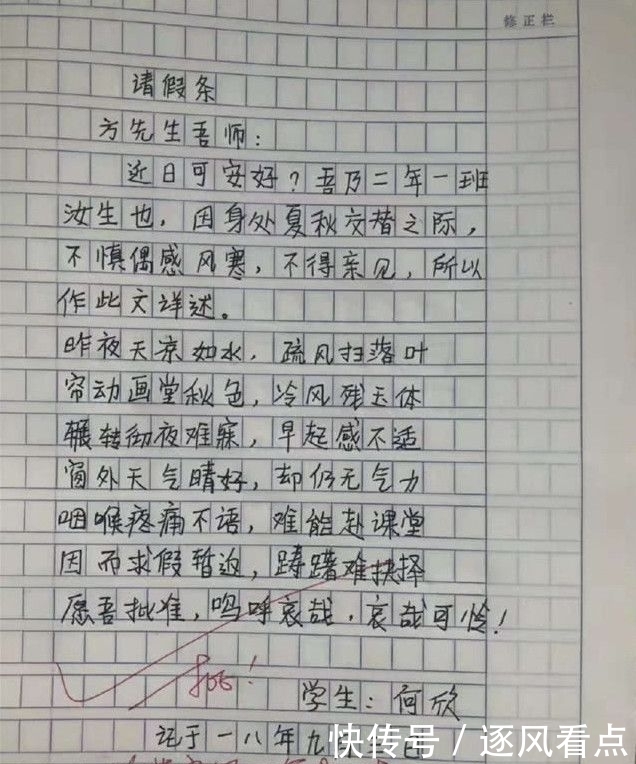 修正栏
请假条
方先生吾师：
近日可安好？吾乃二年一班
汝生也，因身处夏秋交替之际，
不慎偶感风寒，不得亲见，所以
作此文详述。
昨夜天凉如水，疏风扫落叶
帘动画堂秋色，冷风残玉体
辗转彻夜难寐，早起感不适
窗外天气晴好，却仍无气力
咽喉疼痛不语，难能赴课堂
因而求假暂迫，踌躇难抉择
愿吾批准，呜呼哀哉，哀哉可怜！
学生：何欣
记于一八年九
快传号／逐风看点